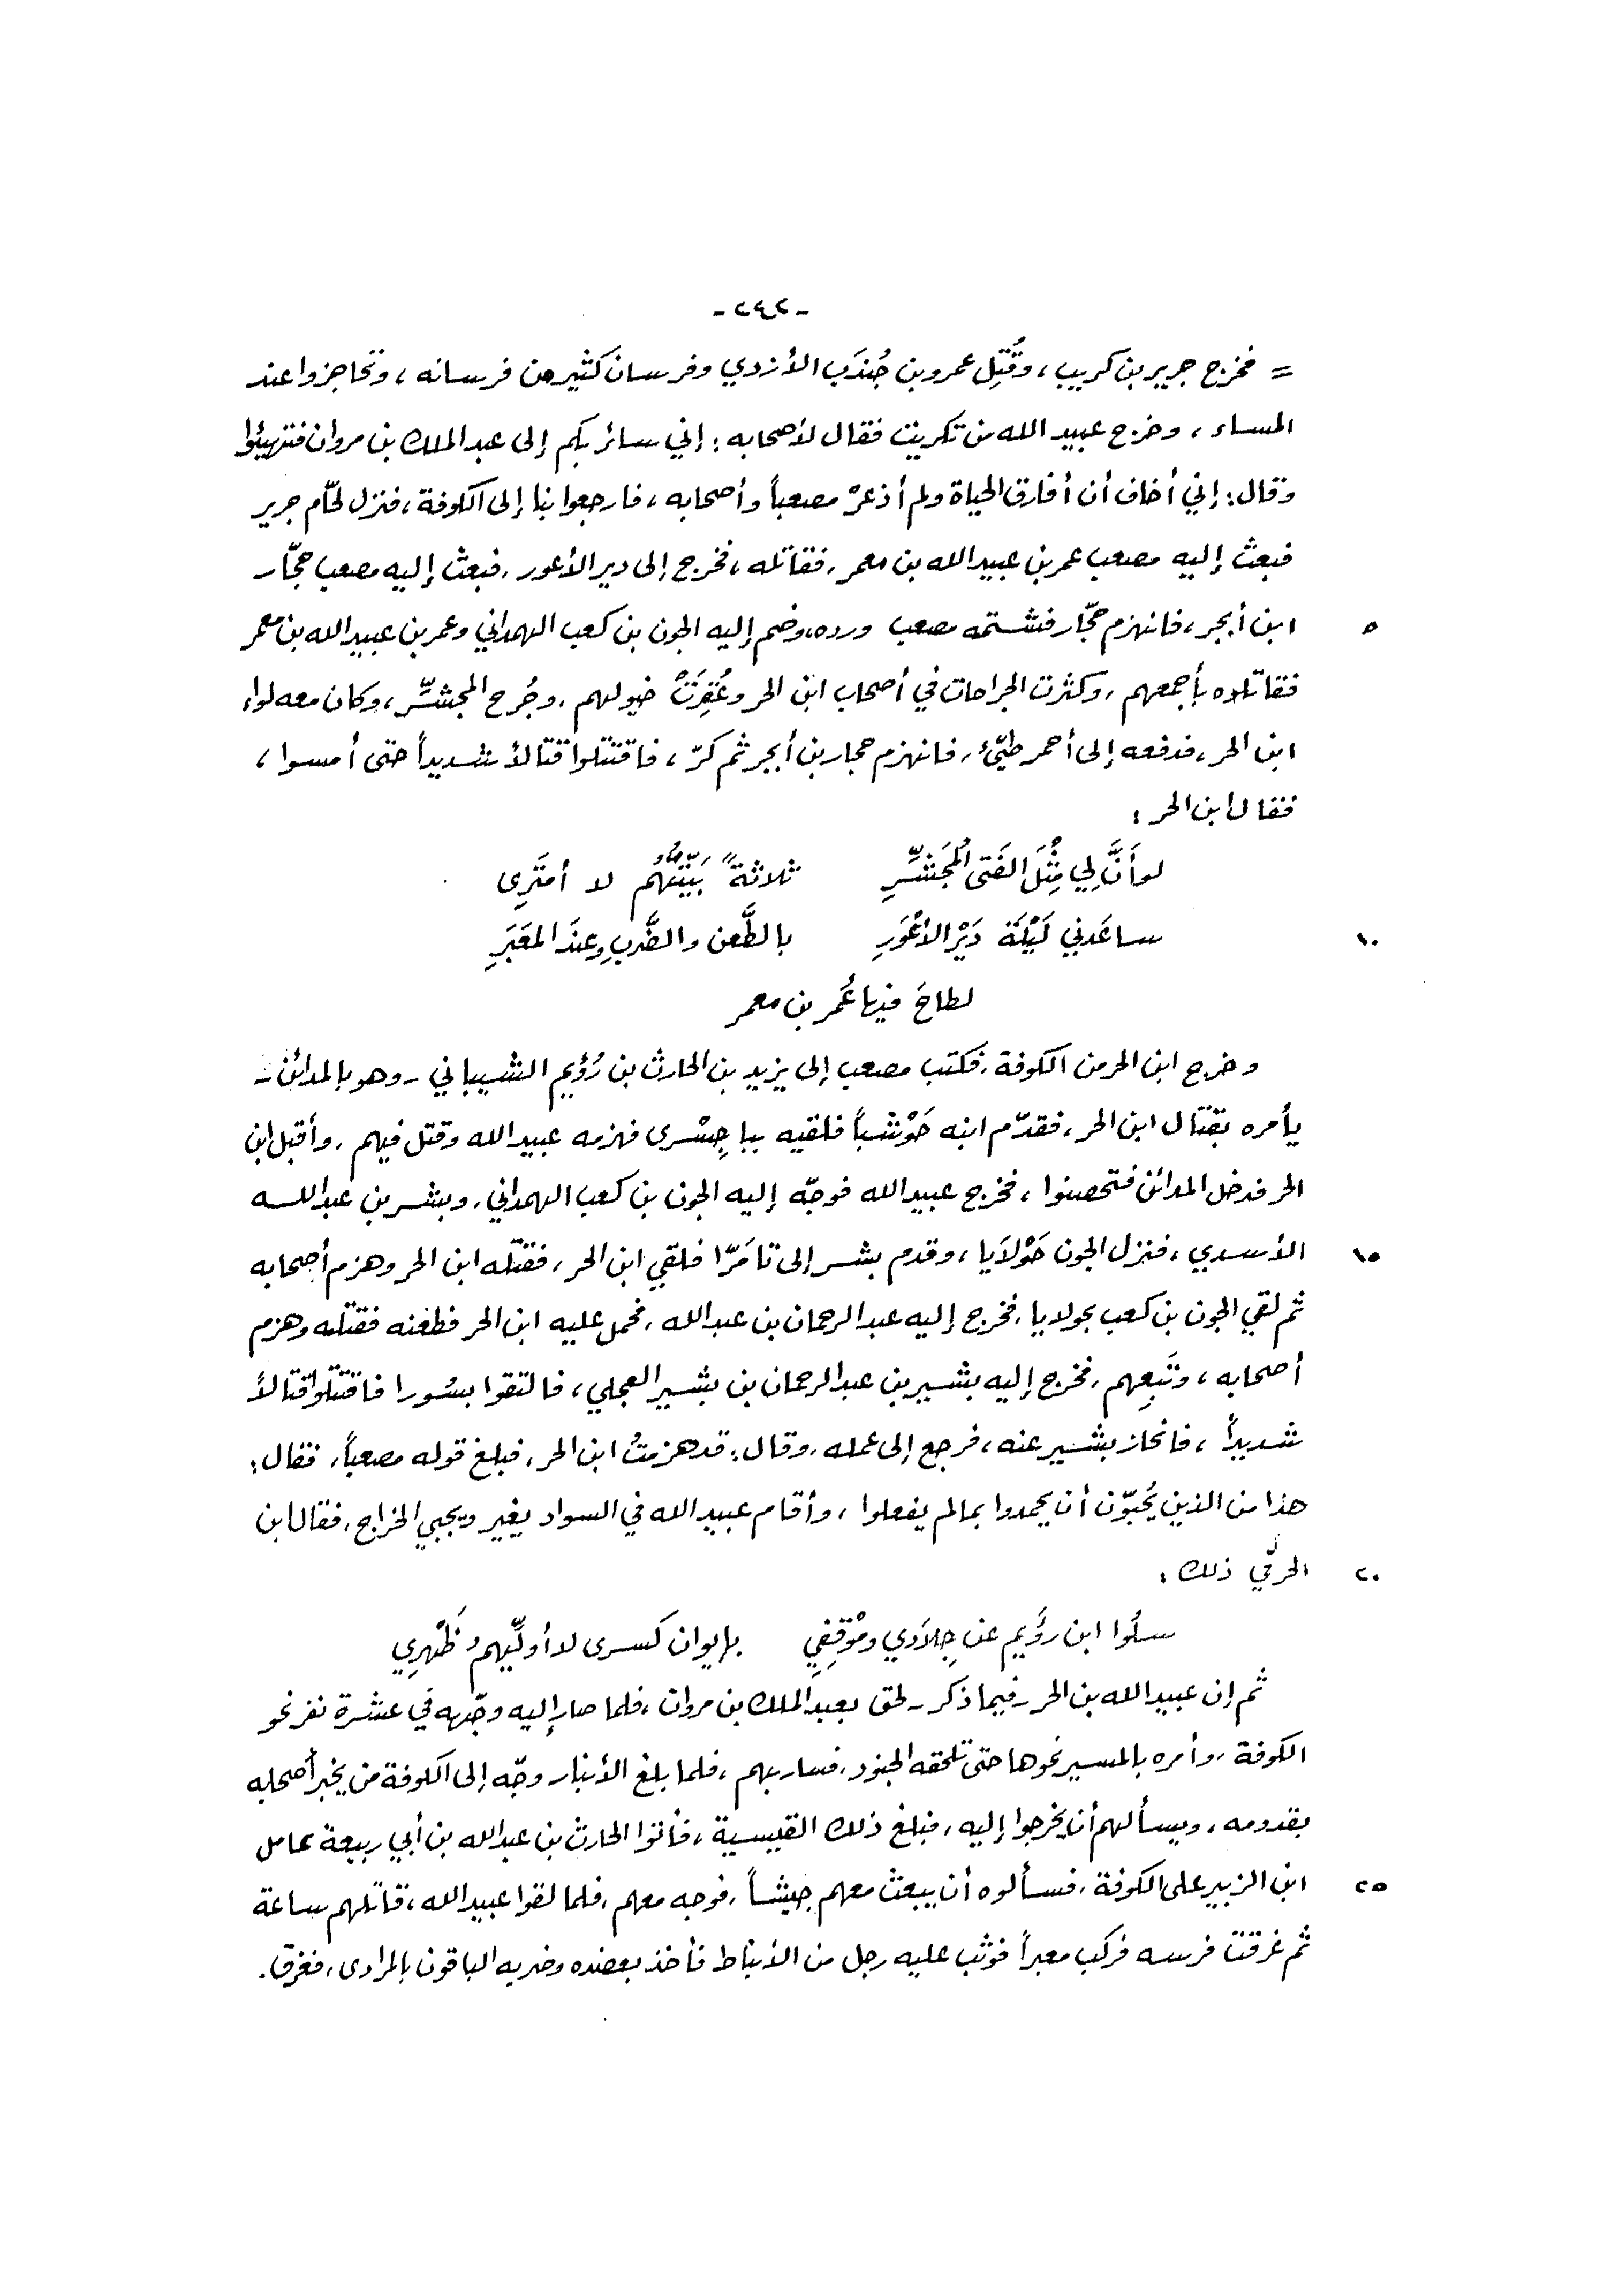 -٢٤٢-
= فخرج جرير بن كريب، وقُتِل عمرو بن جُندَب الأزدي وفرسان كثير من فرسانه، وتحاجزوا عند
المساء، وخرج عبيد الله من تكريت فقال لأصحابه: إني سائر بكم إلى عبد الملك بن مروان فتهيئوا
وقال: إني أخاف أن أفارق الحياة ولم أذعرْ مصعباً وأصحابه، فارجعوا بنا إلى الكوفة، فنزل لحّام جرير
فبعث إليه مصعب عمر بن عبيد الله بن معمر، فقاتله، فخرج إلى دير الأعور، فبعث إليه مصعب حجّار
٥ ابن أبجر، فانهزم حجّار فشتمه مصعب ورده، وضم إليه الجون بن كعب الهمداني وعمر بن عبيد الله بن معمر
فقاتلاه بأجمعهم، وكثرت الجراحات في أصحاب ابن الحر وعُقِرَتْ خيولهم، وجُرح المجشِّر، وكان معه لواء
ابن الحر، فدفعه إلى أحمر طيّئ، فانهزم حجار بن أبجر ثم كرّ، فاقتتلوا قتالاً شديداً حتى أمسوا،
فقال ابن الحر:
لو أَنَّ لي مِثْلَ الفَتى المُجَشِّرِ ثلاثةً بَيَّتُّهُم لا أمتَرِي
١٠ ساعَدني لَيْلَةَ دَيْرِ الأعْوَرِ بالطَّعن والضَّربِ وعندَ المَعْبَرِ
لطاحَ فيها عُمر بن معمر
وخرج ابن الحر من الكوفة، فكتب مصعب إلى يزيد بن الحارث بن رُؤيم الشيباني - وهو بالمدائن -
يأمره بقتال ابن الحر، فقدّم ابنه حَوْشباً فلقيه بباجِسْرى فهزمه عبيد الله وقتل فيهم، وأقبل ابن
الحر فدخل المدائن فتحصنوا، فخرج عبيد الله فوجّه إليه الجون بن كعب الهمداني، وبشر بن عبد الله
١٥ الأسدي، فنزل الجون حَوْلاَيا، وقدم بشر إلى تامَرّا فلقي ابن الحر، فقتله ابن الحر وهزم أصحابه
ثم لقي الجون بن كعب بحولايا، فخرج إليه عبد الرحمان بن عبد الله، فحمل عليه ابن الحر فطعنه فقتله وهزم
أصحابه، وتَبِعهم، فخرج إليه بشير بن عبد الرحمان بن بشير العجلي، فالتقوا بسُورا فاقتتلوا قتالاً
شديداً، فانحاز بشير عنه، فرجع إلى عمله، وقال: قد هزمتُ ابن الحر، فبلغ قوله مصعباً، فقال:
هذا من الذين يُحبّون أن يحمدوا بما لم يفعلوا، وأقام عبيد الله في السواد يغير ويجبي الخراج، فقال ابن
٢٠ الحر في ذلك:
سلُوا ابن رؤَيم عن جِلاَدي ومَوْقِفِي بإيوان كسرى لا أولِّيهمُ ظَهْرِي
ثم إن عبيد الله بن الحر - فيما ذكر - لحق بعبد الملك بن مروان، فلما صار إليه وجّهه في عشرة نفر نحو
الكوفة، وأمره بالمسير نحوها حتى تلحقه الجنود، فسار بهم، فلما بلغ الأنبار وجّه إلى الكوفة من يخبر أصحابه
بقدومه، ويسألهم أن يخرجوا إليه، فبلغ ذلك القيسية، فأتوا الحارث بن عبد الله بن أبي ربيعة عامل
٢٥ ابن الزبير على الكوفة، فسألوه أن يبعث معهم جيشاً، فوجه معهم، فلما لقوا عبيد الله، قاتلهم ساعة
ثم غرقت فرسه فركب معبراً فوثب عليه رجل من الأنباط فأخذ بعضده وضربه الباقون بالمرادى، فغرق.